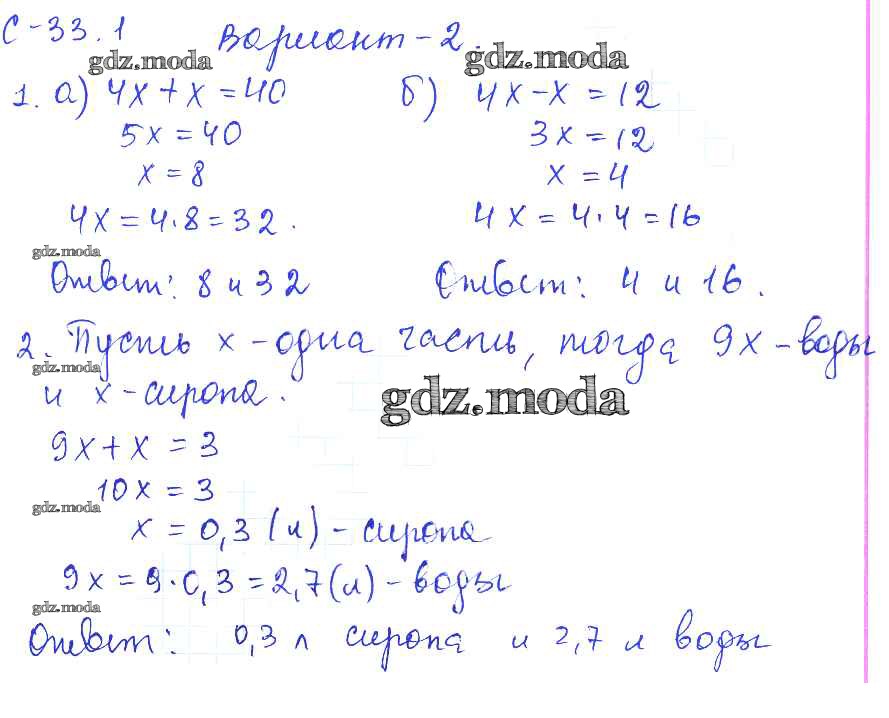 С-33.1 Вариант-2.
gdz.moda gdz.moda
1. а) 4x + x = 40 б) 4x - x = 12
5x = 40 3x = 12
x = 8 x = 4
4x = 4·8 = 32. 4x = 4·4 = 16
gdz.moda
Ответ: 8 и 32 Ответ: 4 и 16.
2. Пусть x - одна часть, тогда 9x - воды
gdz.moda
и x - сиропа.
gdz.moda
9x + x = 3
10x = 3
gdz.moda
x = 0,3 (л) - сиропа
9x = 9·0,3 = 2,7 (л) - воды
gdz.moda
Ответ: 0,3 л сиропа и 2,7 л воды